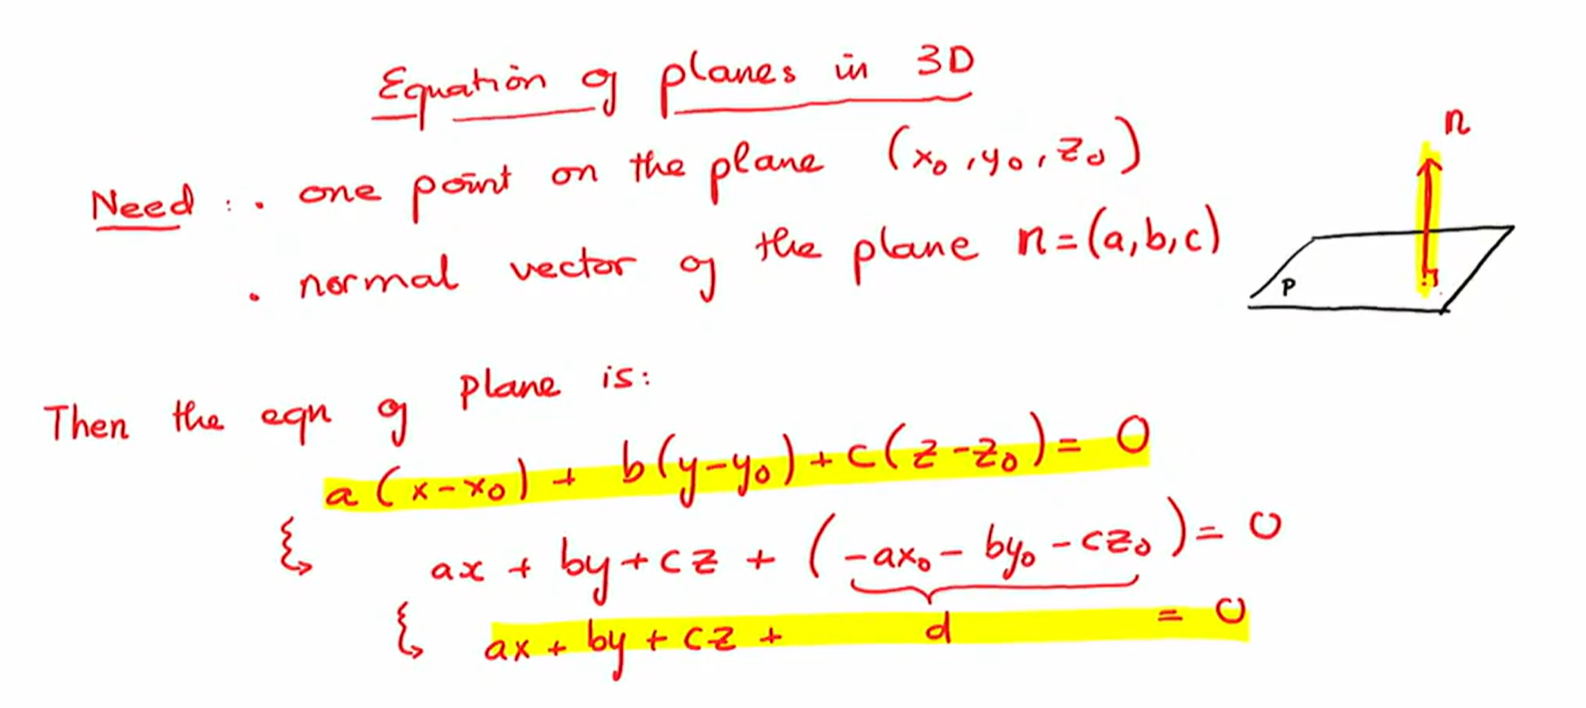 Equation of planes in 3D
Need : . one point on the plane (x₀, y₀, z₀)
. normal vector of the plane n=(a,b,c)
n
P
Then the eqn of plane is:
a(x-x₀) + b(y-y₀) + c(z-z₀) = 0
ax + by + cz + (-ax₀ - by₀ - cz₀) = 0
ax + by + cz + d = 0